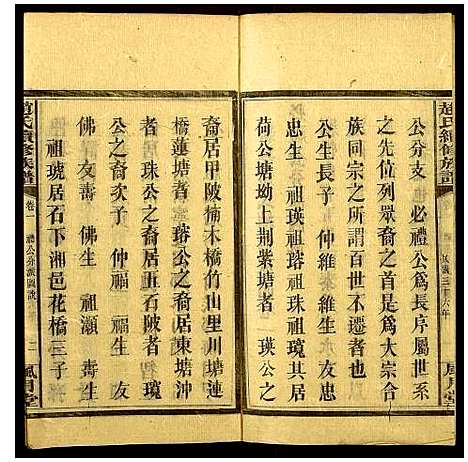 趙氏續修族譜
鳳月堂
公分支 必禮公爲長序屬世系
之先位列衆裔之首是爲大宗合
族同宗之所謂百世不遷者也
公生長子 仲維生 友忠
忠生 祖瑛祖瑢祖珠祖瓊其居
荷公塘坳上荆紫塘者 瑛公之
裔居甲陂楠木橋竹山里川塘連
橋蓮塘者瑢公之裔居東塘沖
者居珠公之裔居五石陂者瓊
公之裔次子 仲福生 友
佛生 友壽 佛生 祖瀬 壽生
祖琥居石下湘邑花橋三子
趙氏續修族譜
卷一 禮公分派圖說 二
鳳月堂